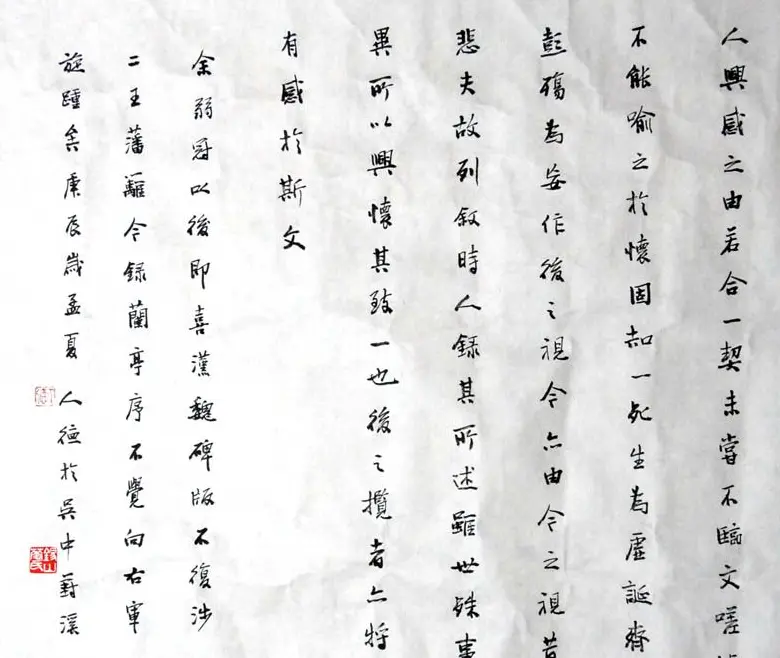 人興感之由若合一契未嘗不臨文嗟
不能喻之於懷固知一死生為虛誕齊
彭殤為妄作後之視今亦由今之視昔
悲夫故列敘時人錄其所述雖世殊事
異所以興懷其致一也後之攬者亦將
有感於斯文
余弱冠以後即喜漢魏碑版不復涉
二王藩籬今録蘭亭序不覺向右軍
旋踵矣庚辰歲孟夏 人德於吳中葑溪